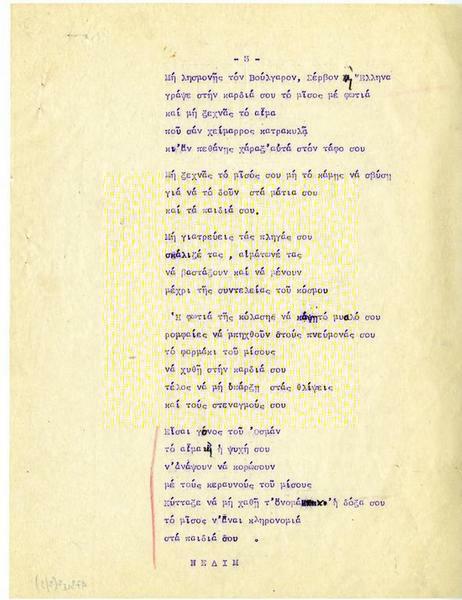 - 3 -
Μή λησμονῇς τόν Βούλγαρον, Σέρβον ἤ Ἕλληνα
γράψε στήν καρδιά σου τό μῖσος μέ φωτιά
καί μή ξεχνᾶς τό αἷμα
ποῦ σάν χείμαρρος κατρακυλᾷ
κι'ἄν πεθάνῃς χάραξ'αὐτά στόν τάφο σου
Μή ξεχνᾶς τό μῖσός σου μή τό κάμῃς νά σβύσῃ
γιά νά τό δοῦν στά μάτια σου
καί τά παιδιά σου.
Μή γιατρεύεις τάς πληγάς σου
σκάλιζέ τας , αἱμάτωνέ τας
νά βαστάξουν καί νά μένουν
μέχρι τῆς συντελείας τοῦ κόσμου
Ἡ φωτιά τῆς κόλασης νά κάψῃ τό μυαλό σου
ρομφαίες νά μπηχθοῦν στούς πνεύμονάς σου
τό φαρμάκι τοῦ μίσους
νά χυθῇ στήν καρδιά σου
τέλος νά μή ὑπάρξῃ στάς θλίψεις
καί τούς στεναγμούς σου
Εἶσαι γόνος τοῦ Ὀσμάν
τό αἷμα ἤ ἡ ψυχή σου
ν'ἀνάψουν νά κορώσουν
μέ τούς κεραυνούς τοῦ μίσους
Κύτταξε νά μή χαθῇ τ'ὄνομά ἡ δόξα σου
τό μῖσος ν'ἆναι κληρονομιά
στά παιδιά σου .
ΝΕΔΙΜ